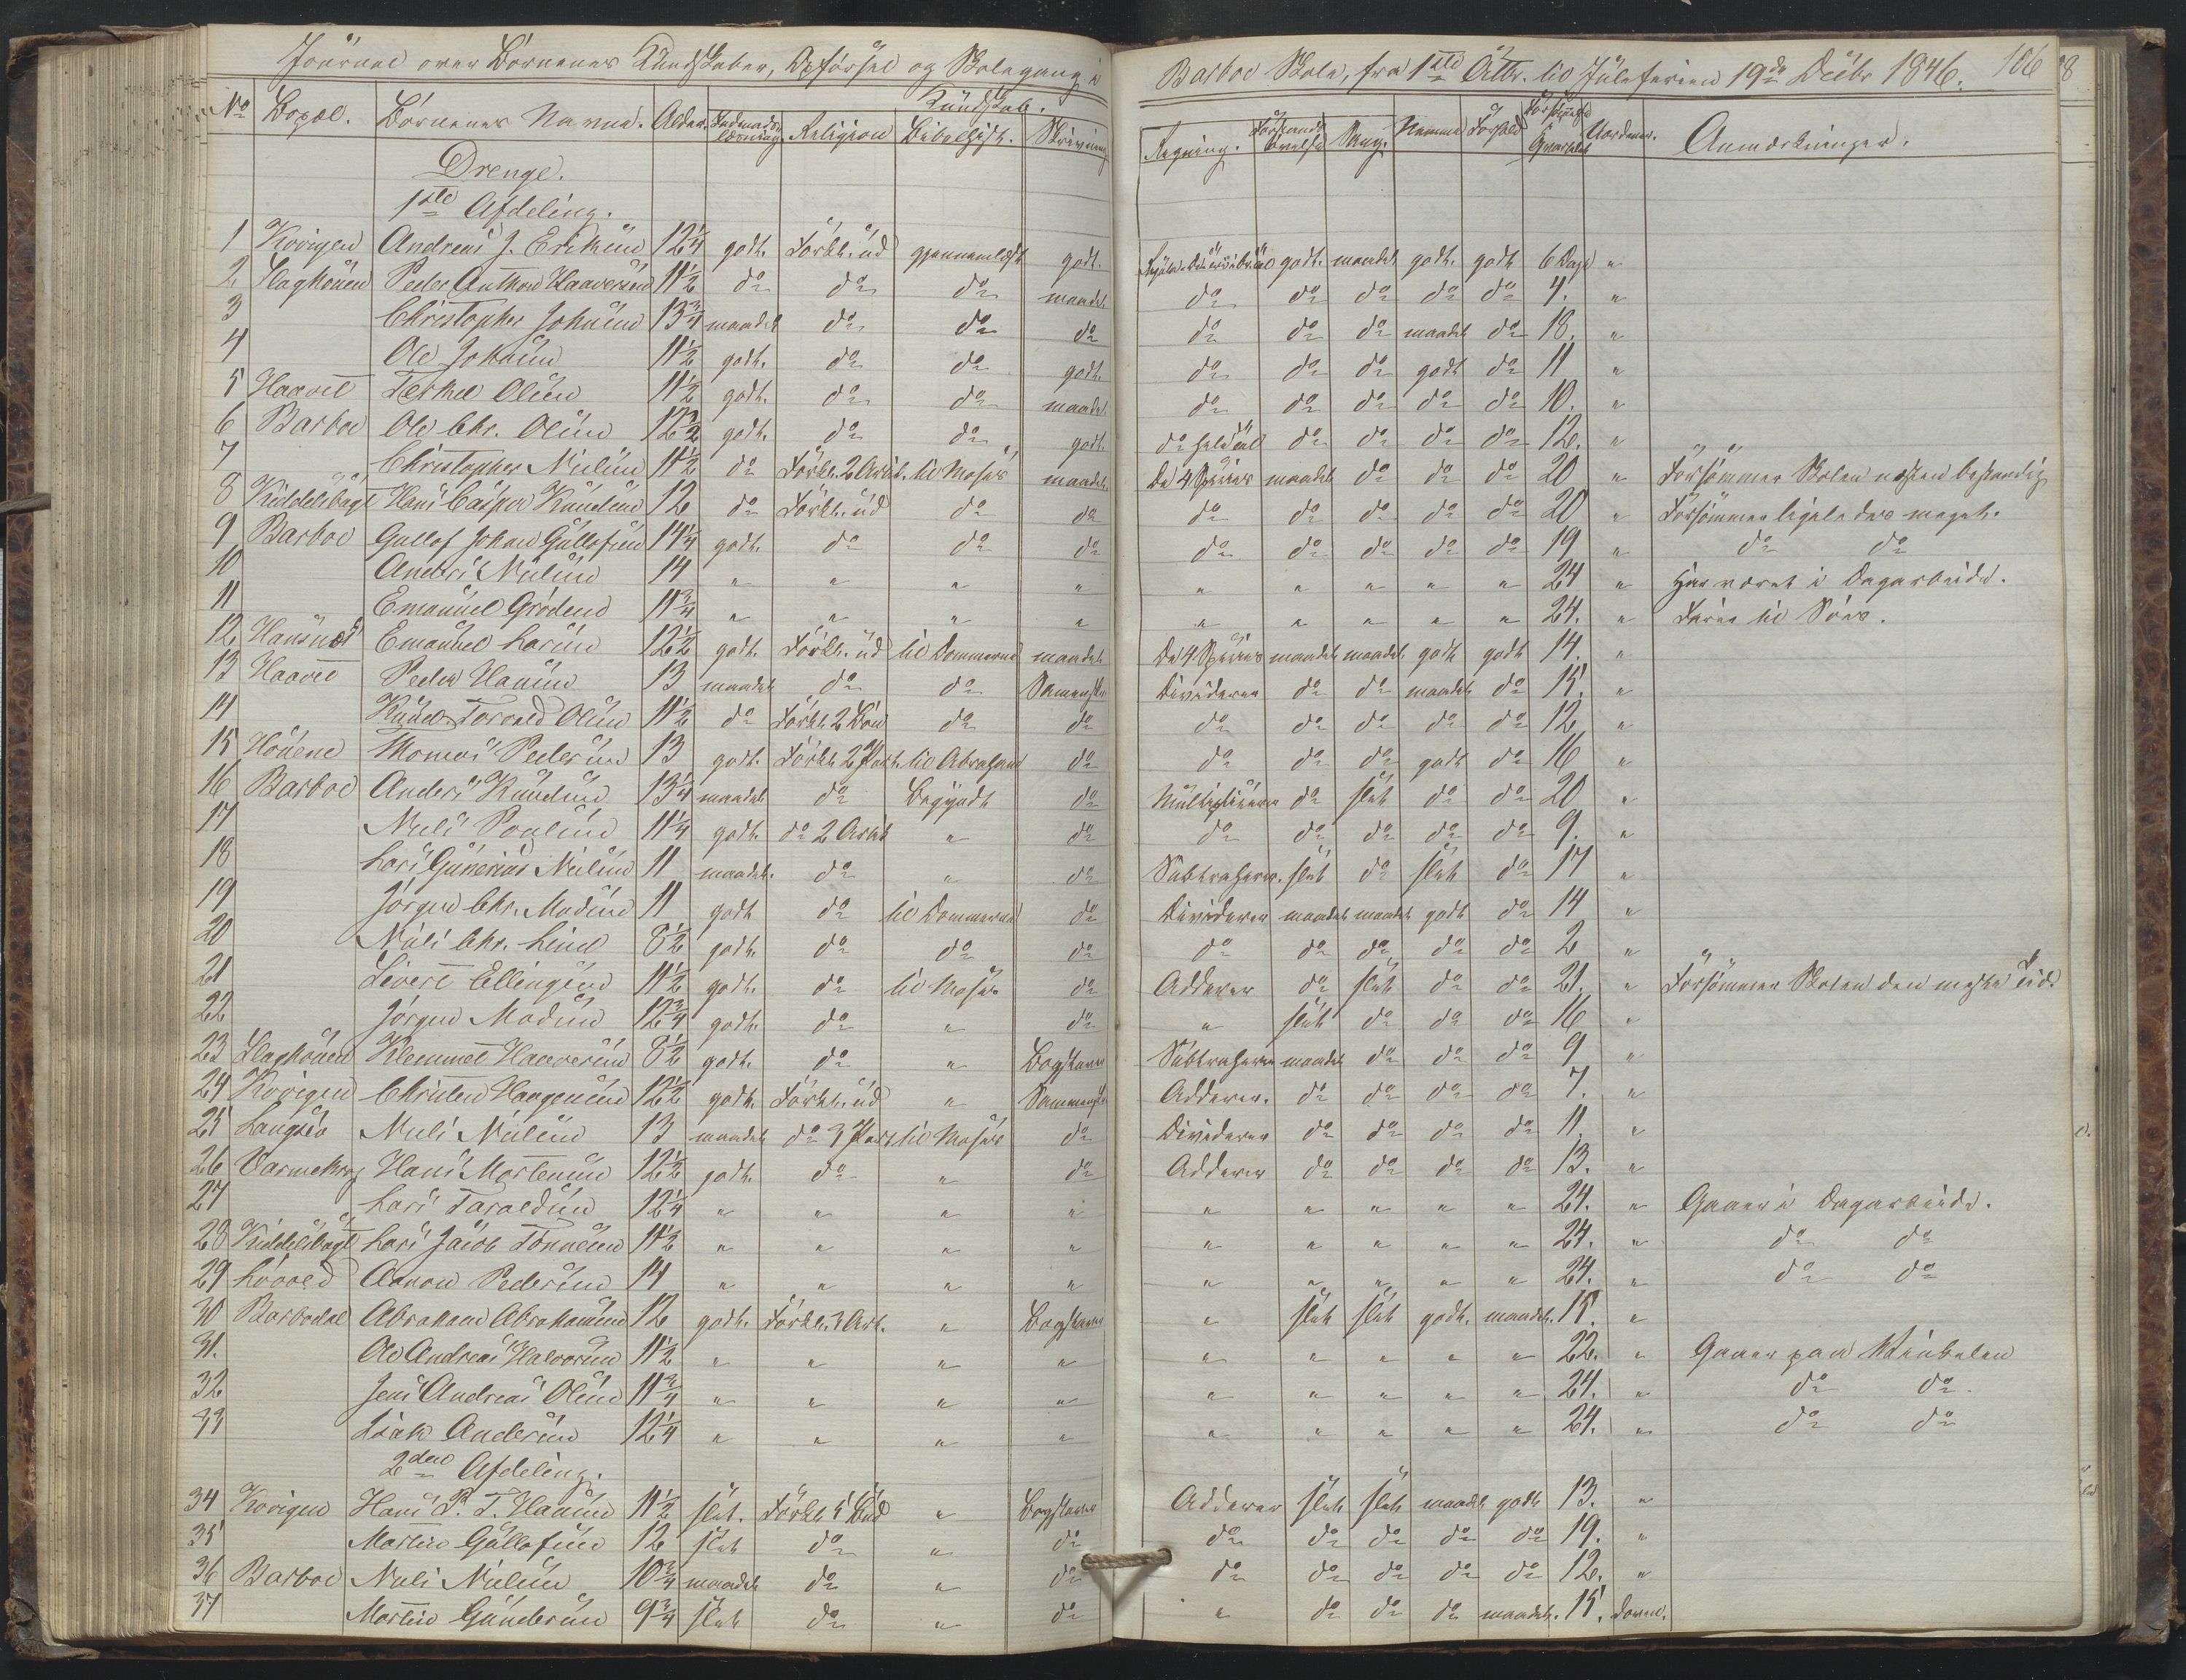 Journal over Børnenes Kundskaber, Opførsel og Skolegang i Barboe Skole, fra 1ste Octbr. til Juleferien 19de Decbr 1846. 106
Kundskab.
No Bopæl. Børnenes Navne. Alder. Indenads læsning Religion Bibelhist. Skrivning Regning. Forstands Øvelse Sang. Nemme Forhold Forsømte i Qvartalet Uordener. Anmærkninger.
Drenge.
1ste Afdeling.
1 Andreas J. Eriksen 12 1/4 godt. Forkl. ud gjennemlæst godt. godt. maadel. godt. godt 6 Dage "
2 Peder Anthon Haaversen 11 1/2 do do do maadel. do do do do do 4. "
3 Christopher Johnsen 13 3/4 maadel do do do do do do maadel do 18. "
4 Ole Johnsen 11 1/2 godt. do do godt. do do do godt do 11 "
5 Haavet Terkel Olsen 11 1/2 godt. do do maadel. do do do do do 10. "
6 Barboe Ole Chr. Olsen godt. do do godt. do do do do do 12. "
7 Christopher Nielsen 11 1/2 do Forkl. 2 Art. til Moses maadel. De 4 Species maadel. do do do 20 " Forsømmer Skolen næsten bestandig
8 Hans Casper Knudsen 12 do Forkl. ud do do do do do do do 20 " Forsømmer ligeledes meget.
9 Barboe Gullof Johan Gullofsen 14 1/4 godt. do do do do do do do do 19 " do do
10 Anders Nielsen 14 " " " " " " " " " 24 " Har været i Dagarbeide.
11 Emanuel Grødem 11 3/4 " " " " " " " " " 24. " Farer til Søes.
12 Hansnæs Emanuel Larsen 12 1/2 godt. Forkl. ud til Dommerne maadel. De 4 Species maadel. maadel. godt godt 14. "
13 Haavet Peder Hansen 13 maadel. do do Sammenskr Dividerer do do maadel. do 15. "
14 Knud Torvald Olsen 11 1/2 do Forkl. 2 Bøn do do do do do do do 12 "
15 Thomas Pedersen 13 godt. Forkl. 2 Part. til Abraham do do do do godt do 16 "
16 Barboe Anders Knudsen 13 1/4 maadel. do Begyndt do Multiplicerer do slet do do 20 "
17 Niels Poulsen 11 1/4 godt. do 2 Artik " do do do do do do 9. "
18 Lars Gunerius Nielsen 11 maadel. do " do Subtraherer. slet do slet do 17 "
19 Jørgen Chr. Madsen 11 godt do til Dommerne do Dividerer maadel. maadel. godt do 14 "
20 Niels Chr. Lund 8 1/2 godt. do do do do do do do do 2 "
21 Sivert Ellingsen 11 1/2 godt. do til Moses do Adderer do slet do do 21. " Forsømmer Skolen den meste Tid.
22 Jørgen Madsen 12 3/4 godt. do " do " slet do do do 16 "
23 Klemmet Haaversen 8 1/2 godt. do " Bogstaver Subtraherer maadel do do do 9 "
24 Christen Haagensen 12 1/2 godt. Forkl. ud " Sammenskr Adderer. do do do do 7. "
25 Langsæ Niels Nielsen 13 maadel. do 3 Part. til Moses do Dividerer do do do do 11. "
26 Varmekrog Hans Mortensen 12 1/2 godt. do " do Adderer do do do do 13. "
27 Lars Taraldsen 12 1/4 " " " " " " " " " 24. " Gaaer i Dagarbeide.
28 Lars Jacob Tønnesen 11 1/2 " " " " " " " " " 24. " do do
29 Løvold Aanon Pedersen 14 " " " " " " " " " 24. " do do
30 Barbodal Abraham Abrahamsen 12 godt. Forkl. 3 Art. " Bogstaver " slet slet godt. maadel. 15. "
31. Ole Andreas Halvorsen 11 1/2 " " " " " " " " " 22. " Gaaer paa Vinkelen
32 Jens Andreas Olsen 11 3/4 " " " " " " " " " 24. " do do
33 Isak Andersen 12 1/4 " " " " " " " " " 24. " do do
2den Afdeling.
34 Hans P. T. Hansen 11 1/2 slet. Forkl. 5 Bud " Bogstaver Adderer slet slet maadel. godt 13. "
35 Martin Gullofsen 12 slet do " do do do do do do 19. "
36 Barboe Niels Nielsen 10 3/4 maadel. do " do do do do do do 12. "
37 Martin Gundersen 9 3/4 slet do " do " do do do maadel. 15. doven.